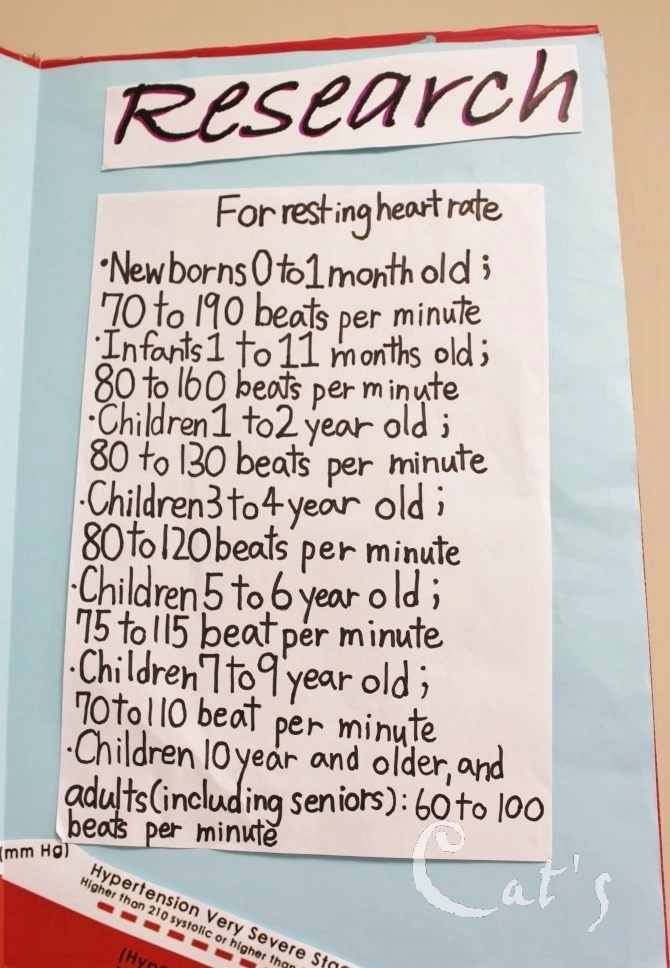 Research
For resting heart rate
·Newborns 0 to 1 month old ;
70 to 190 beats per minute
·Infants 1 to 11 months old ;
80 to 160 beats per minute
·Children 1 to 2 year old ;
80 to 130 beats per minute
·Children 3 to 4 year old ;
80 to 120 beats per minute
·Children 5 to 6 year old ;
75 to 115 beat per minute
·Children 7 to 9 year old ;
70 to 110 beat per minute
·Children 10 year and older, and
adults (including seniors) : 60 to 100
beats per minute
(mm Hg)
Hypertension Very Severe
Higher than 210 systolic or higher than
Cat's